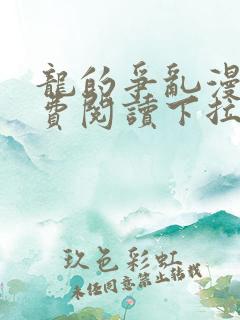 龍的爭亂漫
費閱讀下拉
玖色彩虹
未经同意禁止转载